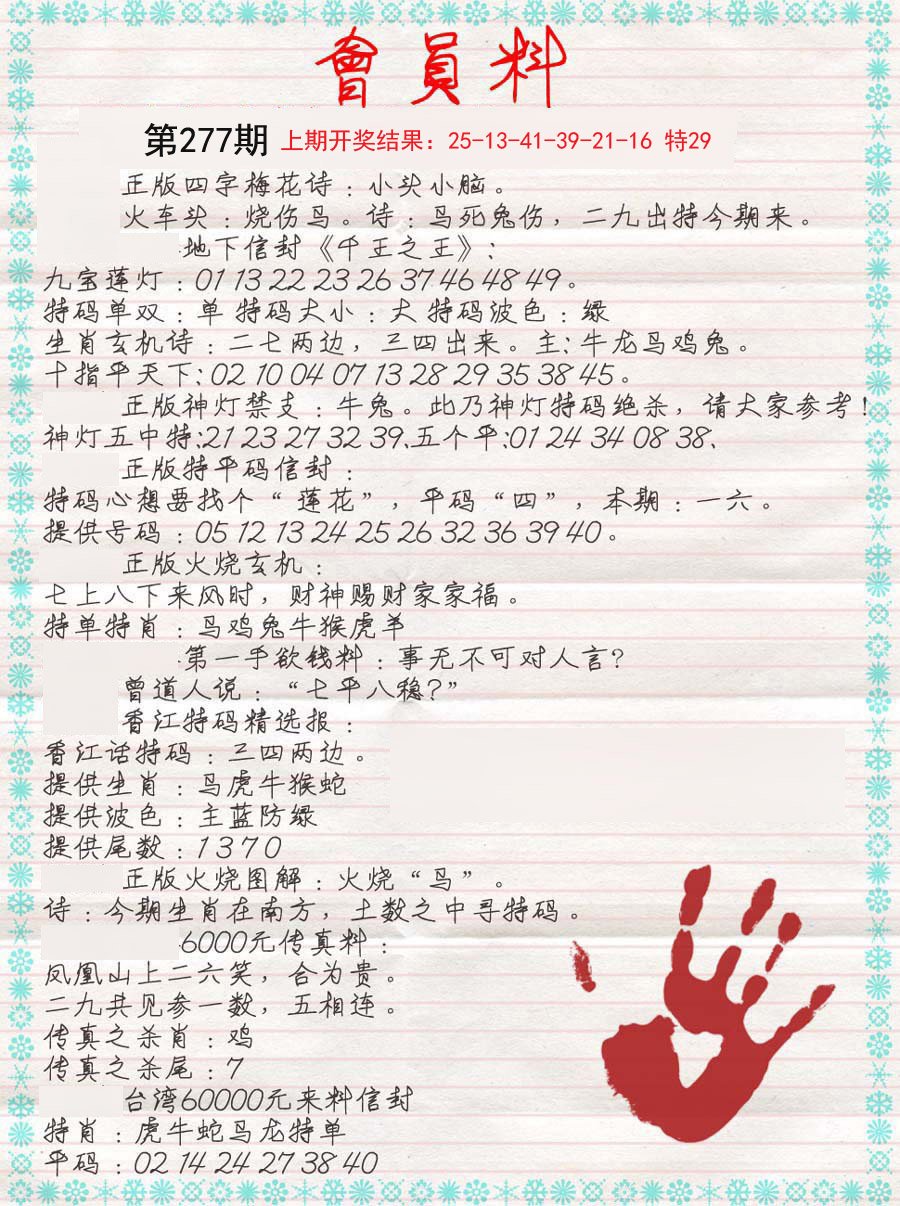 會員料
第277期 上期开奖结果：25-13-41-39-21-16 特29
正版四字梅花诗：小头小脑。
火车头：烧伤鸟。诗：鸟死兔伤，二九出特今期来。
地下信封《千王之王》：
九宝莲灯：01 13 22 23 26 37 46 48 49。
特码单双：单 特码大小：大 特码波色：绿
生肖玄机诗：二七两边，三四出来。主：牛龙鸟鸡兔。
十指平天下：02 10 04 07 13 28 29 35 38 45。
正版神灯禁支：牛兔。此乃神灯特码绝杀，请大家参考！
神灯五中特：21 23 27 32 39、五个平：01 24 34 08 38、
正版特平码信封：
特码心想要找个“莲花”，平码“四”，本期：一六。
提供号码：05 12 13 24 25 26 32 36 39 40。
正版火烧玄机：
七上八下来风时，财神赐财家家福。
特单特肖：鸟鸡兔牛猴虎羊
第一手欲钱料：事无不可对人言？
曾道人说：“七平八稳？”
香江特码精选报：
香江话特码：三四两边。
提供生肖：鸟虎牛猴蛇
提供波色：主蓝防绿
提供尾数：1 3 7 0
正版火烧图解：火烧“鸟”。
诗：今期生肖在南方，土数之中寻特码。
6000元传真料：
凤凰山上二六笑，合为贵。
二九共见参一数，五相连。
传真之杀肖：鸡
传真之杀尾：7
台湾60000元来料信封
特肖：虎牛蛇鸟龙特单
平码：02 14 24 27 38 40